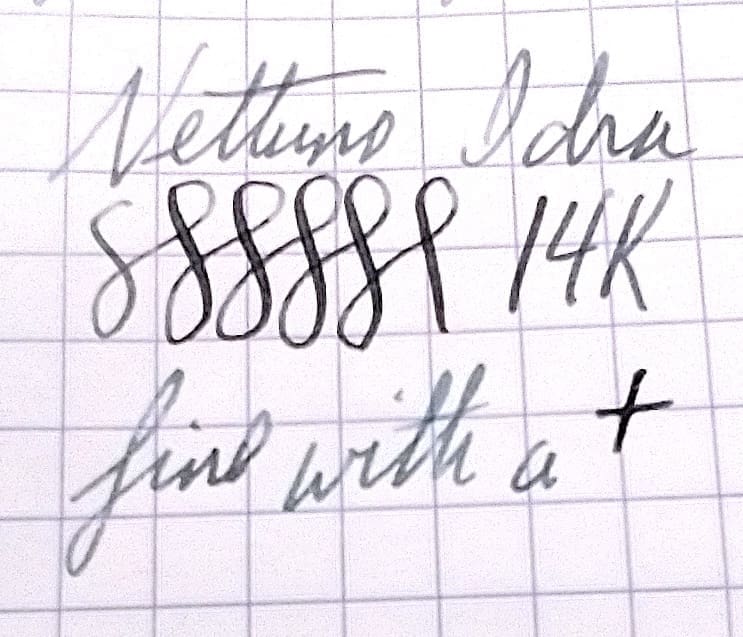 Nettuno Idra
14K
fine with a +